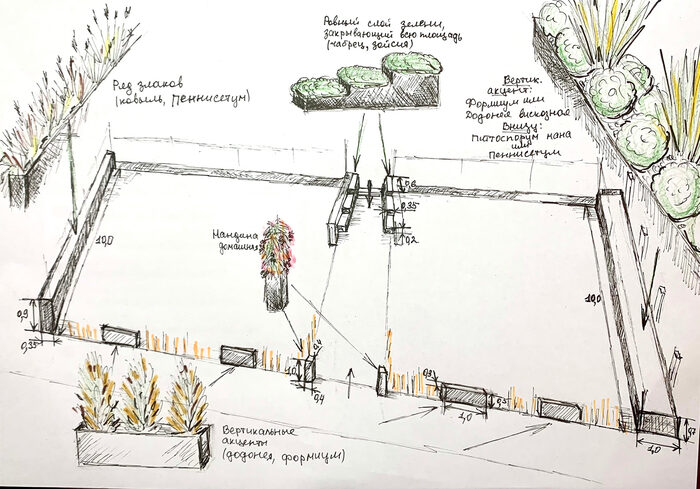 Ровный слой зелени,
закрывающий всю площадь
(чабрец, зойсия)
Ряд злаков
(ковыль, пеннисетум)
Вертик.
акцент:
Формиум или
Додонея вискозная
Внизу:
Питтоспорум нана
или
Пеннисетум
Нандина
домашняя
0,6
0,35
0,2
10,0
10,0
0,9
0,35
0,4
1,0
0,4
0,35
1,0
0,7
1,0
Вертикальные
акценты
(додонея, формиум)